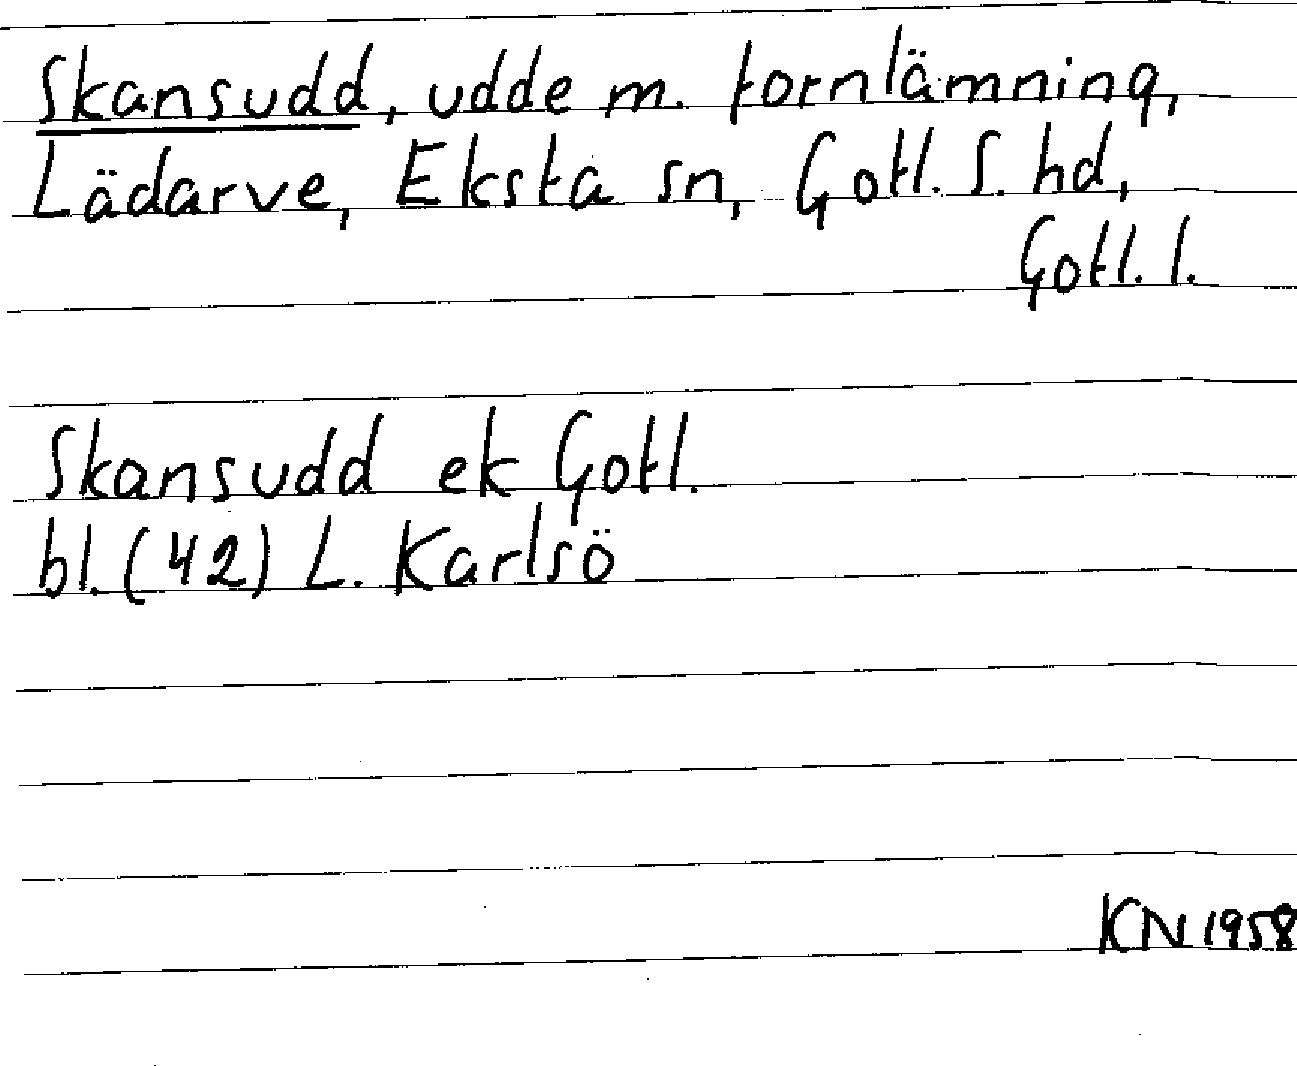 Skansudd, udde m. fornlämning,
Lädarve, Eksta sn, Gotl. S. hd,
Gotl. l.
Skansudd ek Gotl.
bl. (42) L. Karlsö
KN 1958